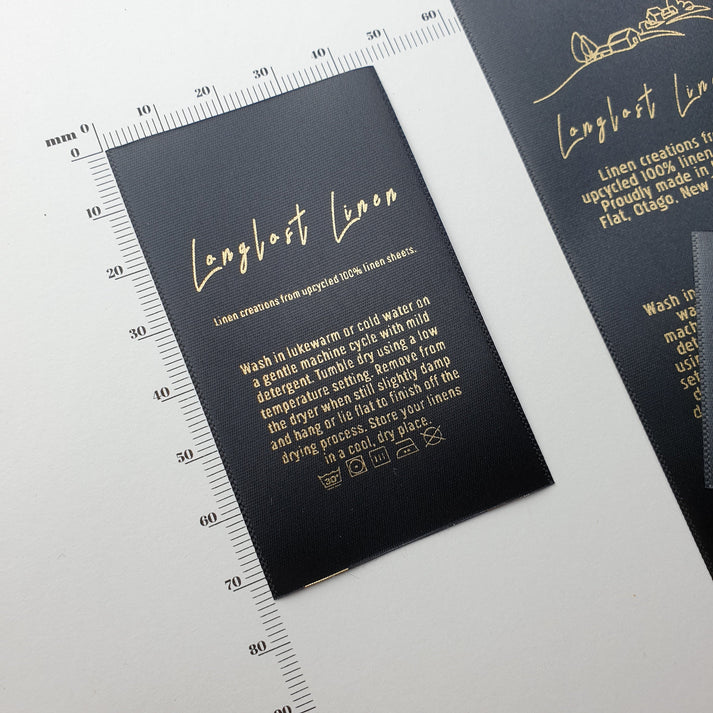 mm 0 10 20 30 40 50 60
0
10
20
30
40
50
60
70
80
Langlast Linen
Linen creations from upcycled 100% linen sheets.
Wash in lukewarm or cold water on
a gentle machine cycle with mild
detergent. Tumble dry using a low
temperature setting. Remove from
the dryer when still slightly damp
and hang or lie flat to finish off the
drying process. Store your linens
in a cool, dry place.
30°
Langlast
Linen creations
upcycled 100% linen
Proudly made in
Flat, Otago. New
Wash in